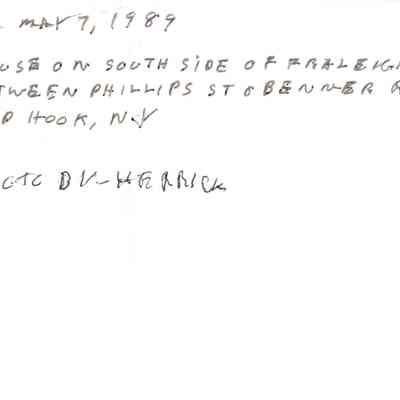 MAY 7, 1989
USE ON SOUTH SIDE OF FRALEIG
TWEEN PHILLIPS ST & BENNER R
D HOOK, N.Y
OTO BY HERRICK